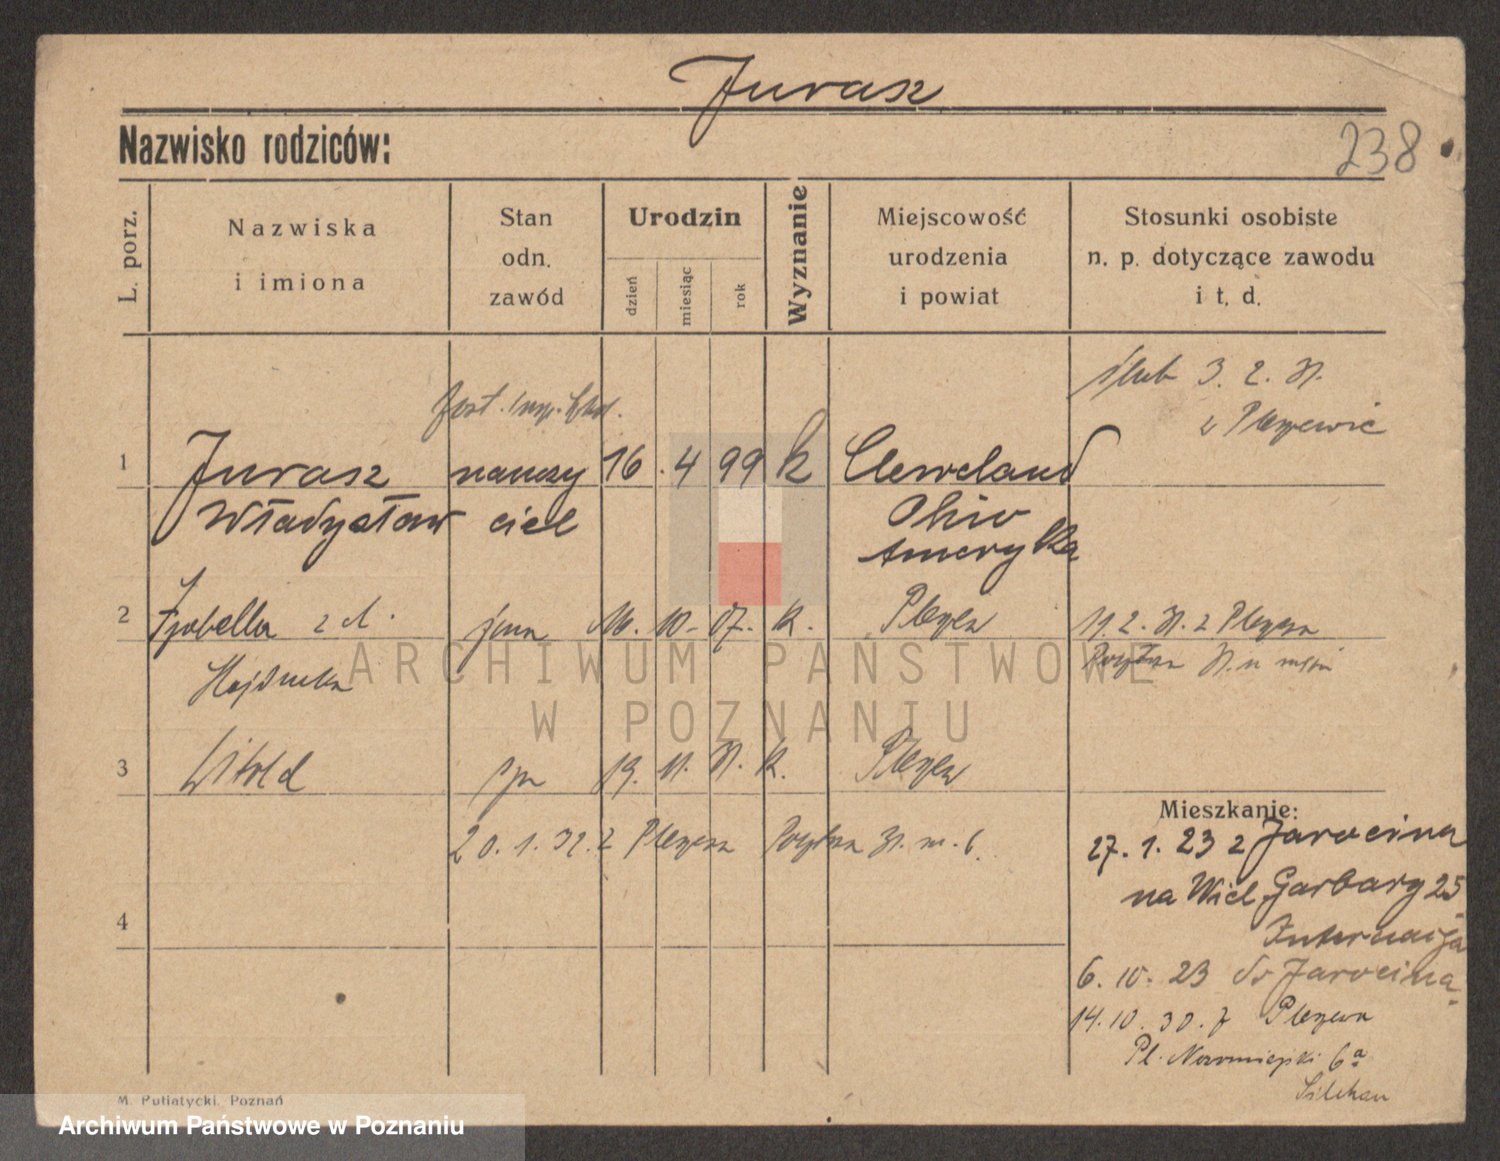 Jurasz
Nazwisko rodziców:
238
L. porz.
Nazwiska
i imiona
Stan
odn.
zawód
Urodzin
dzień
miesiąc
rok
Wyznanie
Miejscowość
urodzenia
i powiat
Stosunki osobiste
n. p. dotyczące zawodu
i t. d.
ślub 3. 2. 31.
w Pleszewie
1
Jurasz nauczy 16. 4 99 k Cleweland
Władysław ciel Ohio
Ameryka
2
Izabella z d. żona 10- 07. k. Pleszew 11. 2. 31. z Pleszewa
Hajduska
3
Witold syn 19. 11. 31. k. Pleszew
20. 1. 32. z Pleszewa 31. m. 6.
4
Mieszkanie:
27. 1. 23 z Jarocina
na Wiel. Garbary 25
6. 10. 23 do Jarocina
14. 10. 30. z Pleszewa
Pl. Nowomiejski 6a
M. Putiatycki, Poznań
ARCHIWUM PAŃSTWOWE
W POZNANIU
Archiwum Państwowe w Poznaniu